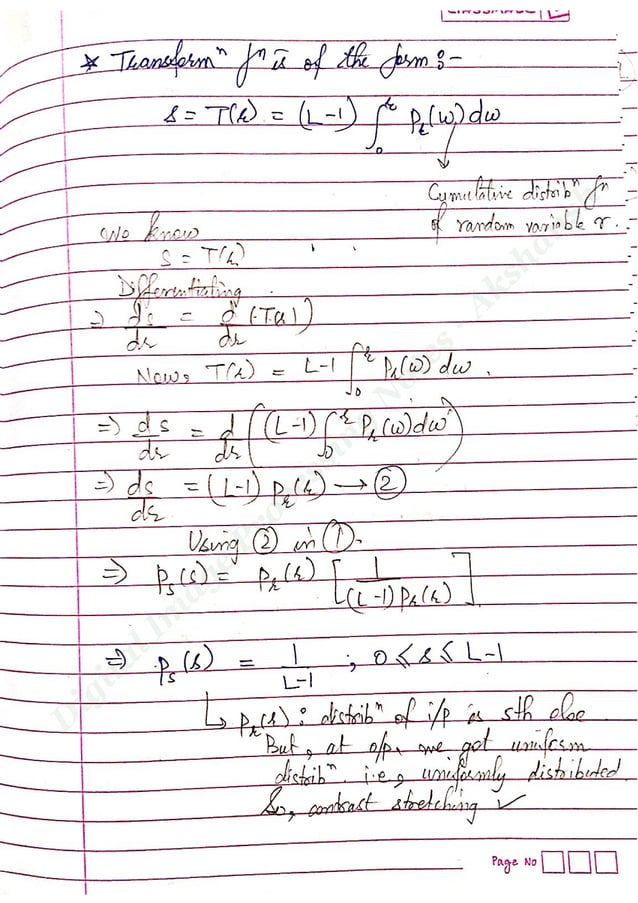 CLASSMATE
* Transformⁿ fⁿ is of the form :-
s = T(r) = (L-1) ∫₀ʳ Pr(w) dw
Cumulative distribⁿ fⁿ
of random variable r.
We know
s = T(r)
Differentiating
⇒ ds/dr = d/dr (T(r))
Now, T(r) = L-1 ∫₀ʳ Pr(w) dw.
⇒ ds/dr = d/dr ((L-1) ∫₀ʳ Pr(w) dw)
⇒ ds/dr = (L-1) Pr(r) → ②
Using ② in ①.
⇒ Ps(s) = Pr(r) [1/((L-1) Pr(r))]
⇒ Ps(s) = 1/(L-1) ; 0 ≤ s ≤ L-1
↳ Pr(r) : distribⁿ of i/p is sth else
But, at o/p, we got uniform
distribⁿ. i.e, uniformly distributed
So, contrast stretching ✓
Page No
Digital Image Processing Notes - Aksha